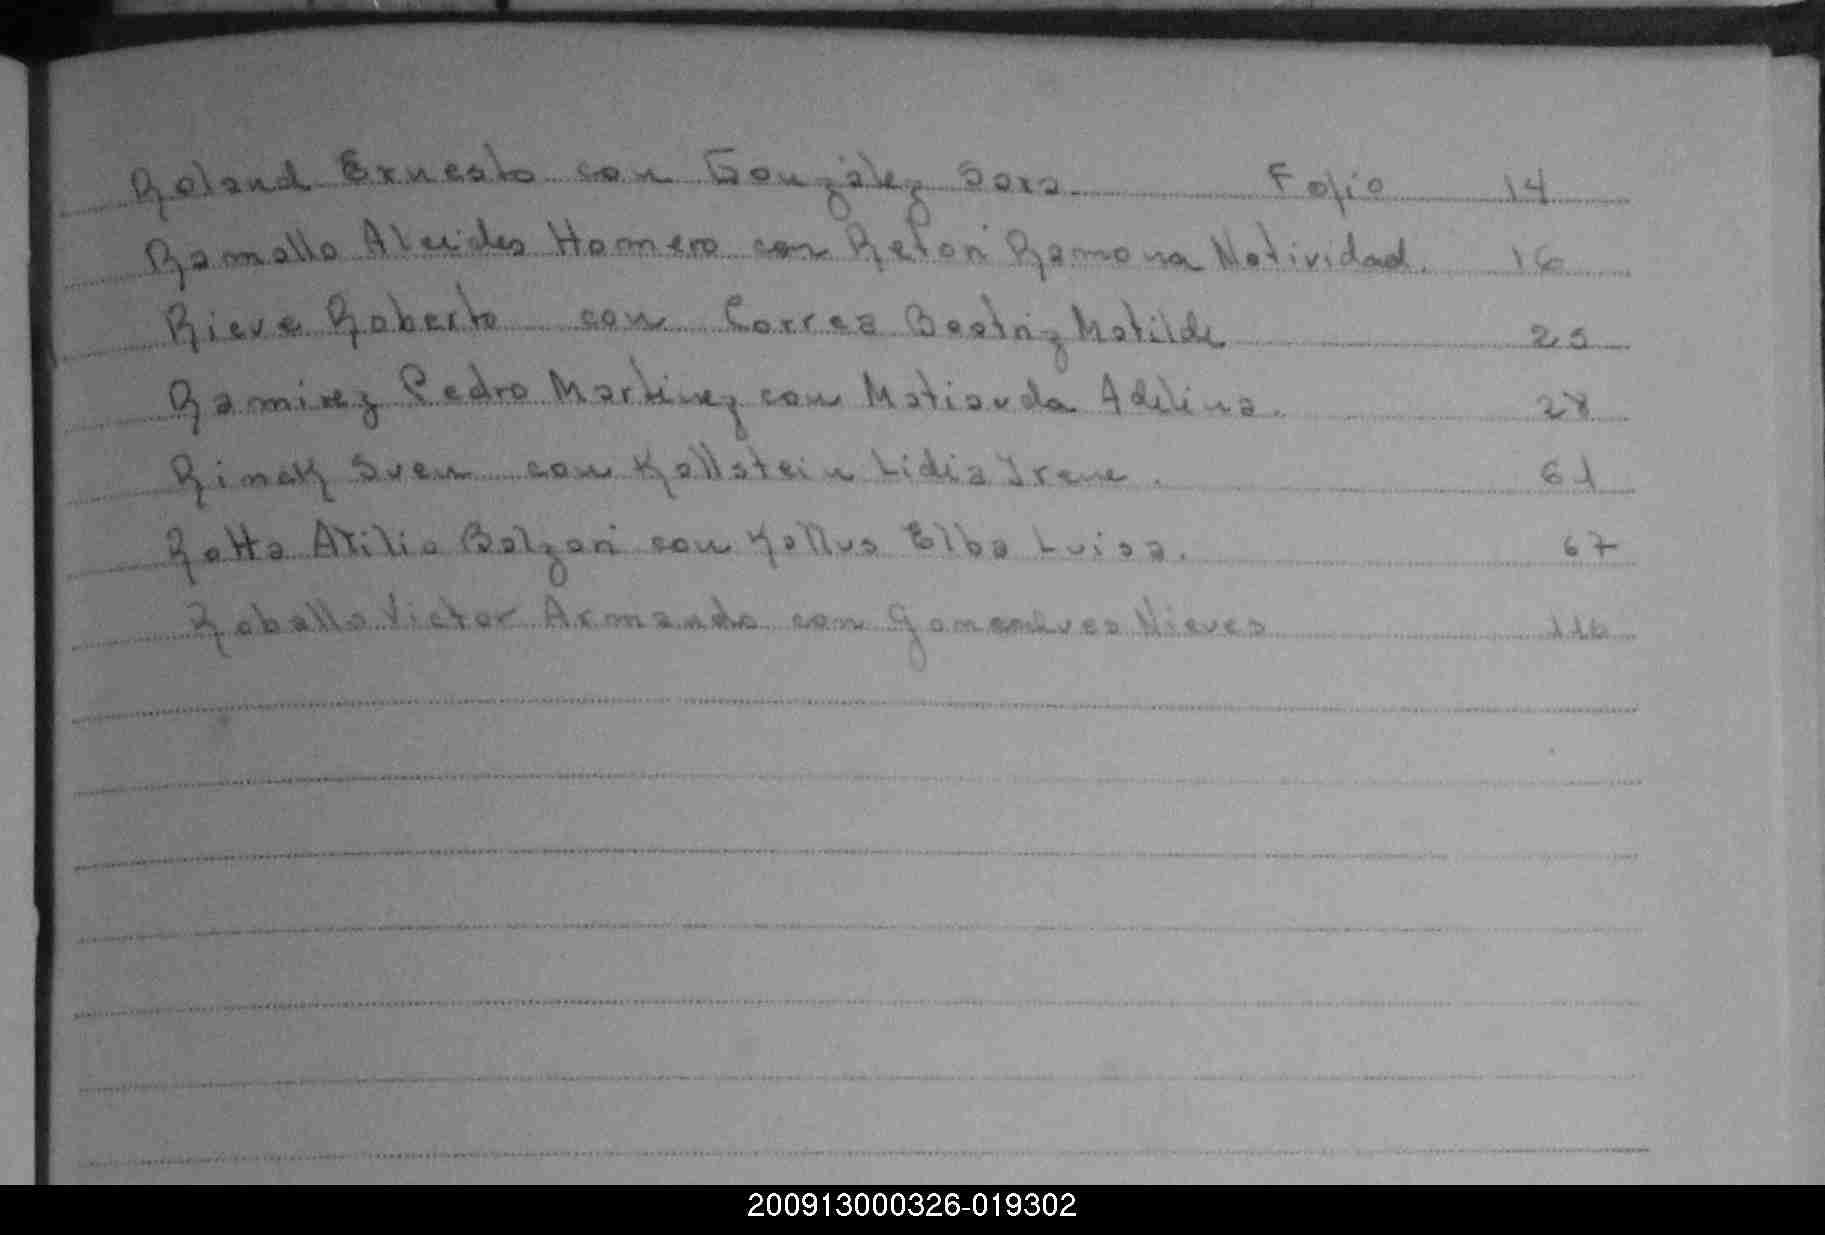 Roland Ernesto con González Sara. Folio 14
Ramallo Alcides Homero con Retori Ramona Natividad. 16
Rieve Roberto con Correa Beatriz Matilde 25
Ramirez Pedro Martinez con Matiauda Adelina. 28
Rinak Sven con Kallstein Lidia Irene. 61
Rotta Atilio Balzari con Kallus Elba Luisa. 67
Roballo Victor Armando con Gonsalves Nieves 116
200913000326-019302